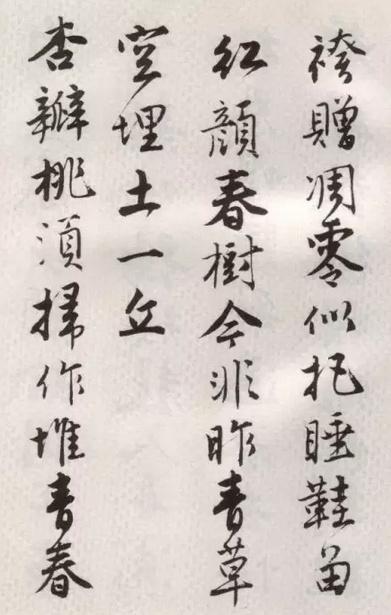 袴贈凋零似把睡鞋留
紅顔春樹今非昨青草
空埋土一丘
杏瓣桃須掃作堆青春